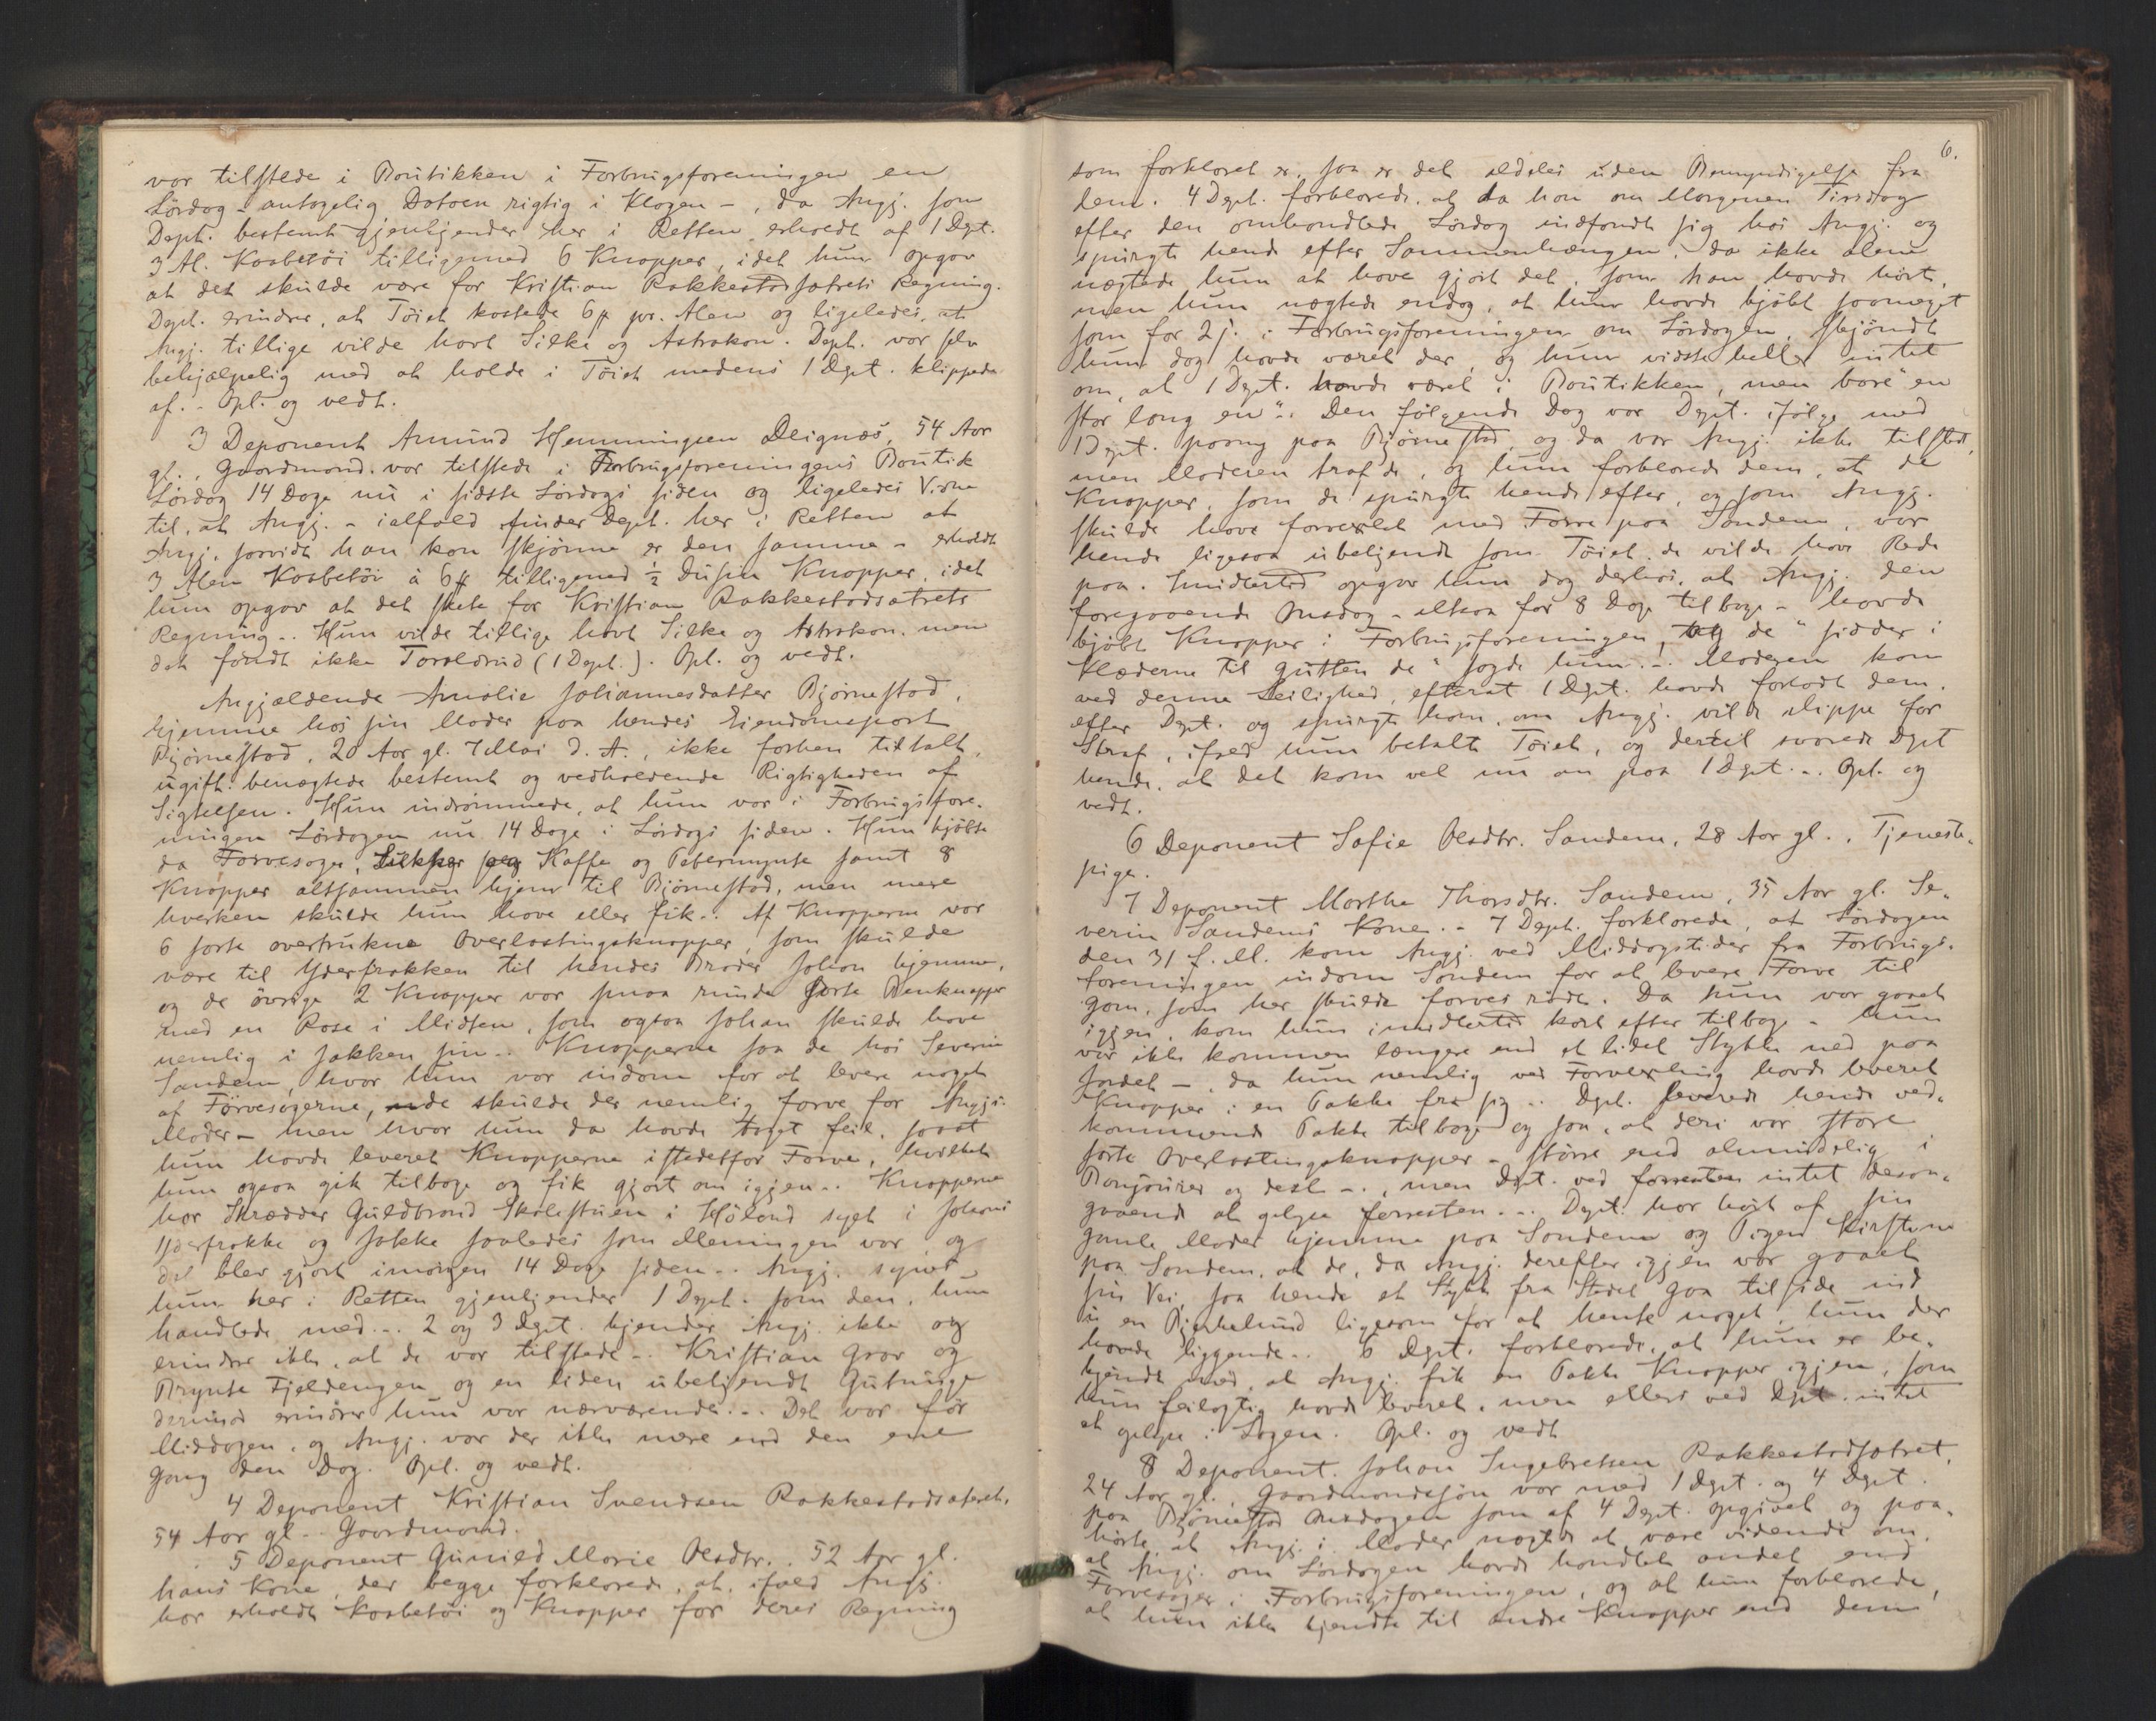 var tilstede i Boutikken i Forbrugsforeningen en
Lördag – antagelig Datoen rigtig i Klagen –, da Angj. som
Dept. bestemt gjenkjender her i Retten erholdt af 1 Dpt.
3 Al. Kaabetöi tilligemed 6 Knapper, idet hun opgav
at det skulde være for Kristian Rakkestadsætrets Regning.
Dept. erindrer, at Töiet kostede 6 ß pr. Alen og ligeledes, at
Angj. tillige vilde havt Silke og Astrakan. Dept. var selv
behjælpelig med at holde i Töiet medens 1 Dpt. klippede
af. - Opl. og vedt.
3 Deponent Amund Hemmingsen Deignæs, 54 Aar
gl., Gaardmand. var tilstede i Forbrugsforeningens Boutik
Lördag 14 Dage nu i sidste Lördags siden og ligeledes Vidne
til, at Angj. – ialfald finder Dept. her i Retten at
Angj. saavidt han kan skjönne er den samme – erholdt
3 Alen Kaabetöi à 6 ß tilligemed ½ Dusin Knapper, idet
hun opgav at det skete for Kristian Rakkestadsætrets
Regning.. Hun vilde tillige havt Silke og Astrakan. men
det fandt ikke Toreldrud (1 Dept.). Opl. og vedt.
Angjældende Amalie Johannesdatter Bjørnestad,
hjemme hos sin Moder paa hendes Eiendomspart
Bjørnestad, 20 Aar gl. 7 Mai d. A., ikke forhen tiltalt,
ugift. benægtede bestemt og vedholdende Rigtigheden af
Sigtelsen. Hun indrömmede, at hun var i Forbrugsfore-
ningen Lördagen nu 14 Dage i Lördags siden. Hun kjöbte
da Farvesager, Kaffe og Pebermynte samt 8
Knapper altsammen hjem til Bjørnestad, men mere
hverken skulde hun have eller fik.. Af Knapperne var
6 sorte overtrukne Overlastingsknapper, som skulde
være til Yderfrakken til hendes Broder Johan hjemme,
og de övrige 2 Knapper var smaa runde sorte Benknapper
med en Rose i Midten, som ogsaa Johan skulde have
nemlig i Jakken sin.. Knapperne saa de hos Severin
Sandem, hvor hun var indom for at levere noget
af Farvesagerne, de skulde der nemlig farve for Angjs.
Moder – men hvor hun da havde taget feil, saaat
hun havde leveret Knapperne istedetfor Farve, hvilket
hun ogsaa gik tilbage og fik gjort om igjen.. Knapperne
har Skrædder Guldbrand Skolestuen i Höland syet i Johans
Yderfrakke og Jakke saaledes som Meningen var, og
det blev gjort imorgen 14 Dage siden.. Angj. synes
hun her i Retten gjenkjender 1 Dept. som den, hun
handlede med.. 2 og 3 Dpt. kjender Angj. ikke og
erindrer ikke, at de var tilstede.. Kristian Grav og
Brynte Fjeldengen og en liden ubekjendt Gutunge
derimod erindrer hun var nærværende... Det var för
Middagen, og Angj. var der ikke mere end den ene
Gang den Dag. Opl. og vedt.
4 Deponent Kristian Svendsen Rakkestadsætret,
54 Aar gl.. Gaardmand.
5 Deponent Gunild Marie Olsdtr. . 52 Aar gl.
hans Kone, der begge forklarede, at, ifald Angj.
har erholdt Kaabetöi og Knapper for deres Regning
6.
som forklaret er, saa er det aldeles uden Bemyndigelse fra
dem. 4 Dept. forklarede, at da han om Morgenen Tirsdag
efter den omhandlede Lördag indfandt sig hos Angj. og
spurgte hende efter Sammenhængen, da ikke alene
nægtede hun at have gjort det, som han havde hört,
men hun nægtede endog, at hun havde kjöbt saameget
som for 2 ß. i Forbrugsforeningen om Lördagen, skjöndt
hun dog havde været der, og hun vidste heller intet
om, at 1 Dpt. havde været i Boutikken, men bare "en
stor lang en".. Den fölgende Dag var Dpt. ifölge med
1 Dpt. paany paa Bjørnestad, og da var Angj. ikke tilstede,
men Moderen traf de, og hun forklarede dem, at de
Knapper, som de spurgte hende efter, og som Angj.
skulde have forvexlet med Farve paa Sandem, var
hende ligesaa ubekjendt som Töiet, de vilde have Rede
paa. Imidlertid opgav hun dog derhos, at Angj. den
foregaaende Onsdag – altsaa for 8 Dage tilbage – havde
kjöbt Knapper i Forbrugsforeningen, de "sidder i
Klæderne til gutten de" sagde hun... Moderen kom
ved denne Leilighed, efterat 1 Dpt. havde forladt dem,
efter Dpt. og spurgte ham, om Angj. vilde slippe for
Straf, ifald hun betalte Töiet, og dertil svarede Dpt
hende, at det kom vel nu an paa 1 Dpt... Opl. og
vedt.
6 Deponent Sofie Olsdtr. Sandem, 28 Aar gl., Tjeneste-
pige.
7 Deponent Marthe Thorsdtr. Sandem, 35 Aar gl. Se-
verin Sandems Kone.. 7 Dept. forklarede, at Lördagen
den 31 f. M. kom Angj. ved Middagstider fra Forbrugs-
foreningen indom Sandem for at levere Farve til
Garn, som her skulde farves rödt. Da hun var gaaet
igjen, kom hun imidlertid kort efter tilbage – hun
var ikke kommen længere end et lidet Stykke ned paa
Jordet –, da hun nemlig ved Forvexling havde leveret
Knapper i en Pakke fra sig.. Dpt. leverede hende ved-
kommende Pakke tilbage og saa, at deri var store
sorte Overlastingsknapper – större end almindelig i
Bonjourer og desl. –., men Dpt. ved forresten intet desan-
gaaende at oplyse forresten... Dpt. har hört af sin
gamle Moder hjemme paa Sandem og Pigen Kirstine
paa Sandem, at de, da Angj. derefter igjen var gaaet
sin Vei, saa hende et Stykke fra Stedet gaa tilside ind
i en Bjerkelund ligesom for at hente noget, hun der
havde liggende.. 6 Dpt. forklarede, at hun er be-
kjendt med, at Angj. fik en Pakke Knapper igjen, som
hun feilagtig havde leveret, men ellers ved Dpt. intet
at oplyse i Sagen. Opl. og vedt
8 Deponent. Johan Ingebretsen Rakkestadsætret,
24 Aar gl., Gaardmandssön var med 1 Dpt. og 4 Dpt.
paa Bjørnestad Onsdagen som af 4 Dept. opgivet og paa-
hörte, at Angj.s Moder nægtede at være vidende om,
at Angj. om Lördagen havde handlet andet end
Farvesager i Forbrugsforeningen, og at hun forklarede,
at hun ikke kjendte til andre Knapper end dem